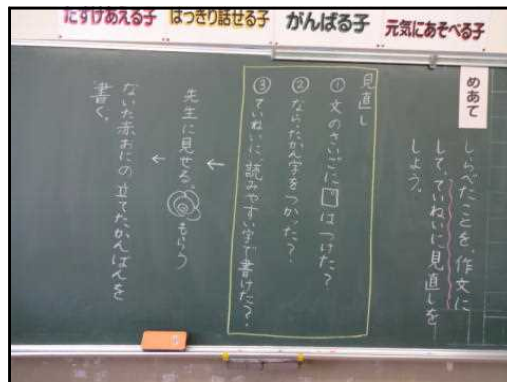 たすけあえる子
はっきり話せる子
がんばる子
元気にあそべる子
めあて
しらべたことを、作文に
して、ていねいに見直しを
しよう。
見直し
①文のさいごに「。」はつけた?
②ならったかん字をつかった?
③ていねいに、読みやすい字で書けた?
↓
先生に見せる。もらう
↓
ないた赤おにの立てたかんばんを
書く。